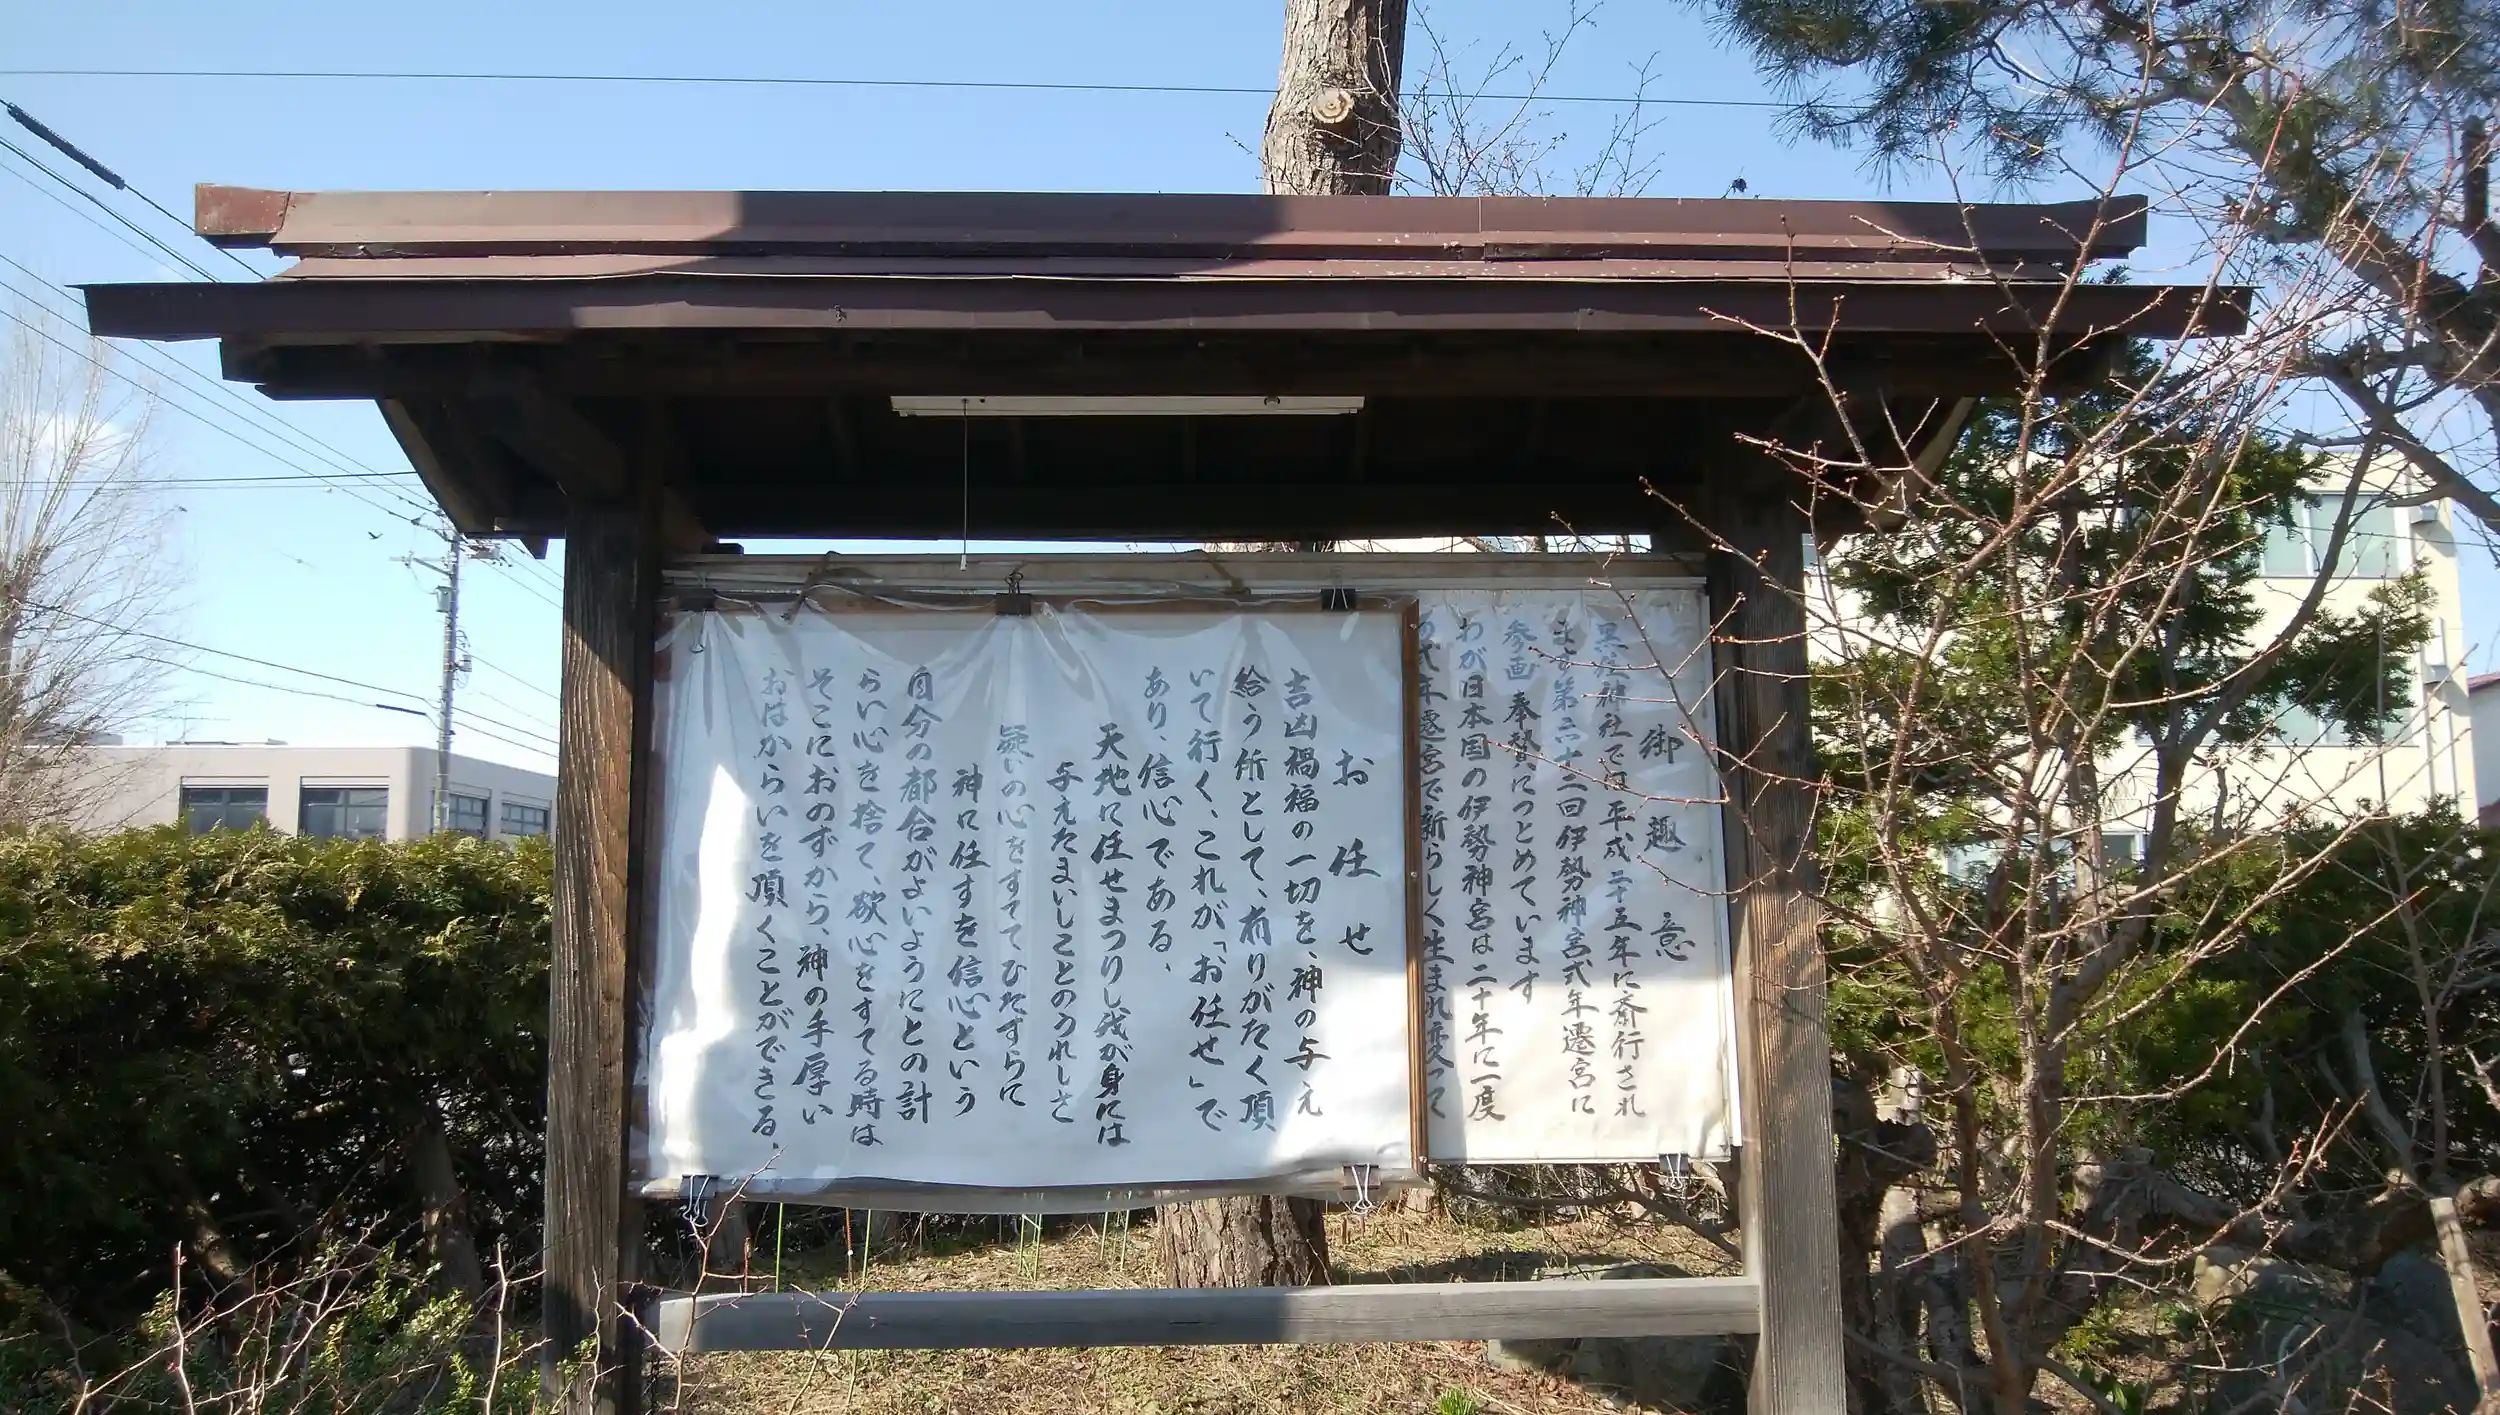 御趣意
黒住神社では平成二十五年に斎行され
ます第六十二回伊勢神宮式年遷宮に
参画 奉賛につとめています
わが日本国の伊勢神宮は二十年に一度
の式年遷宮で新らしく生まれ変って
お任せ
吉凶禍福の一切を、神の与え
給う所として、有りがたく頂
いて行く、これが「お任せ」で
あり、信心である、
天地に任せまつりし我が身には
与えたまいしことのうれしさ
疑いの心をすててひたすらに
神に任すを信心という
自分の都合がよいようにとの計
らい心を捨て、欲心をすてる時は
そこにおのずから、神の手厚い
おはからいを頂くことができる、